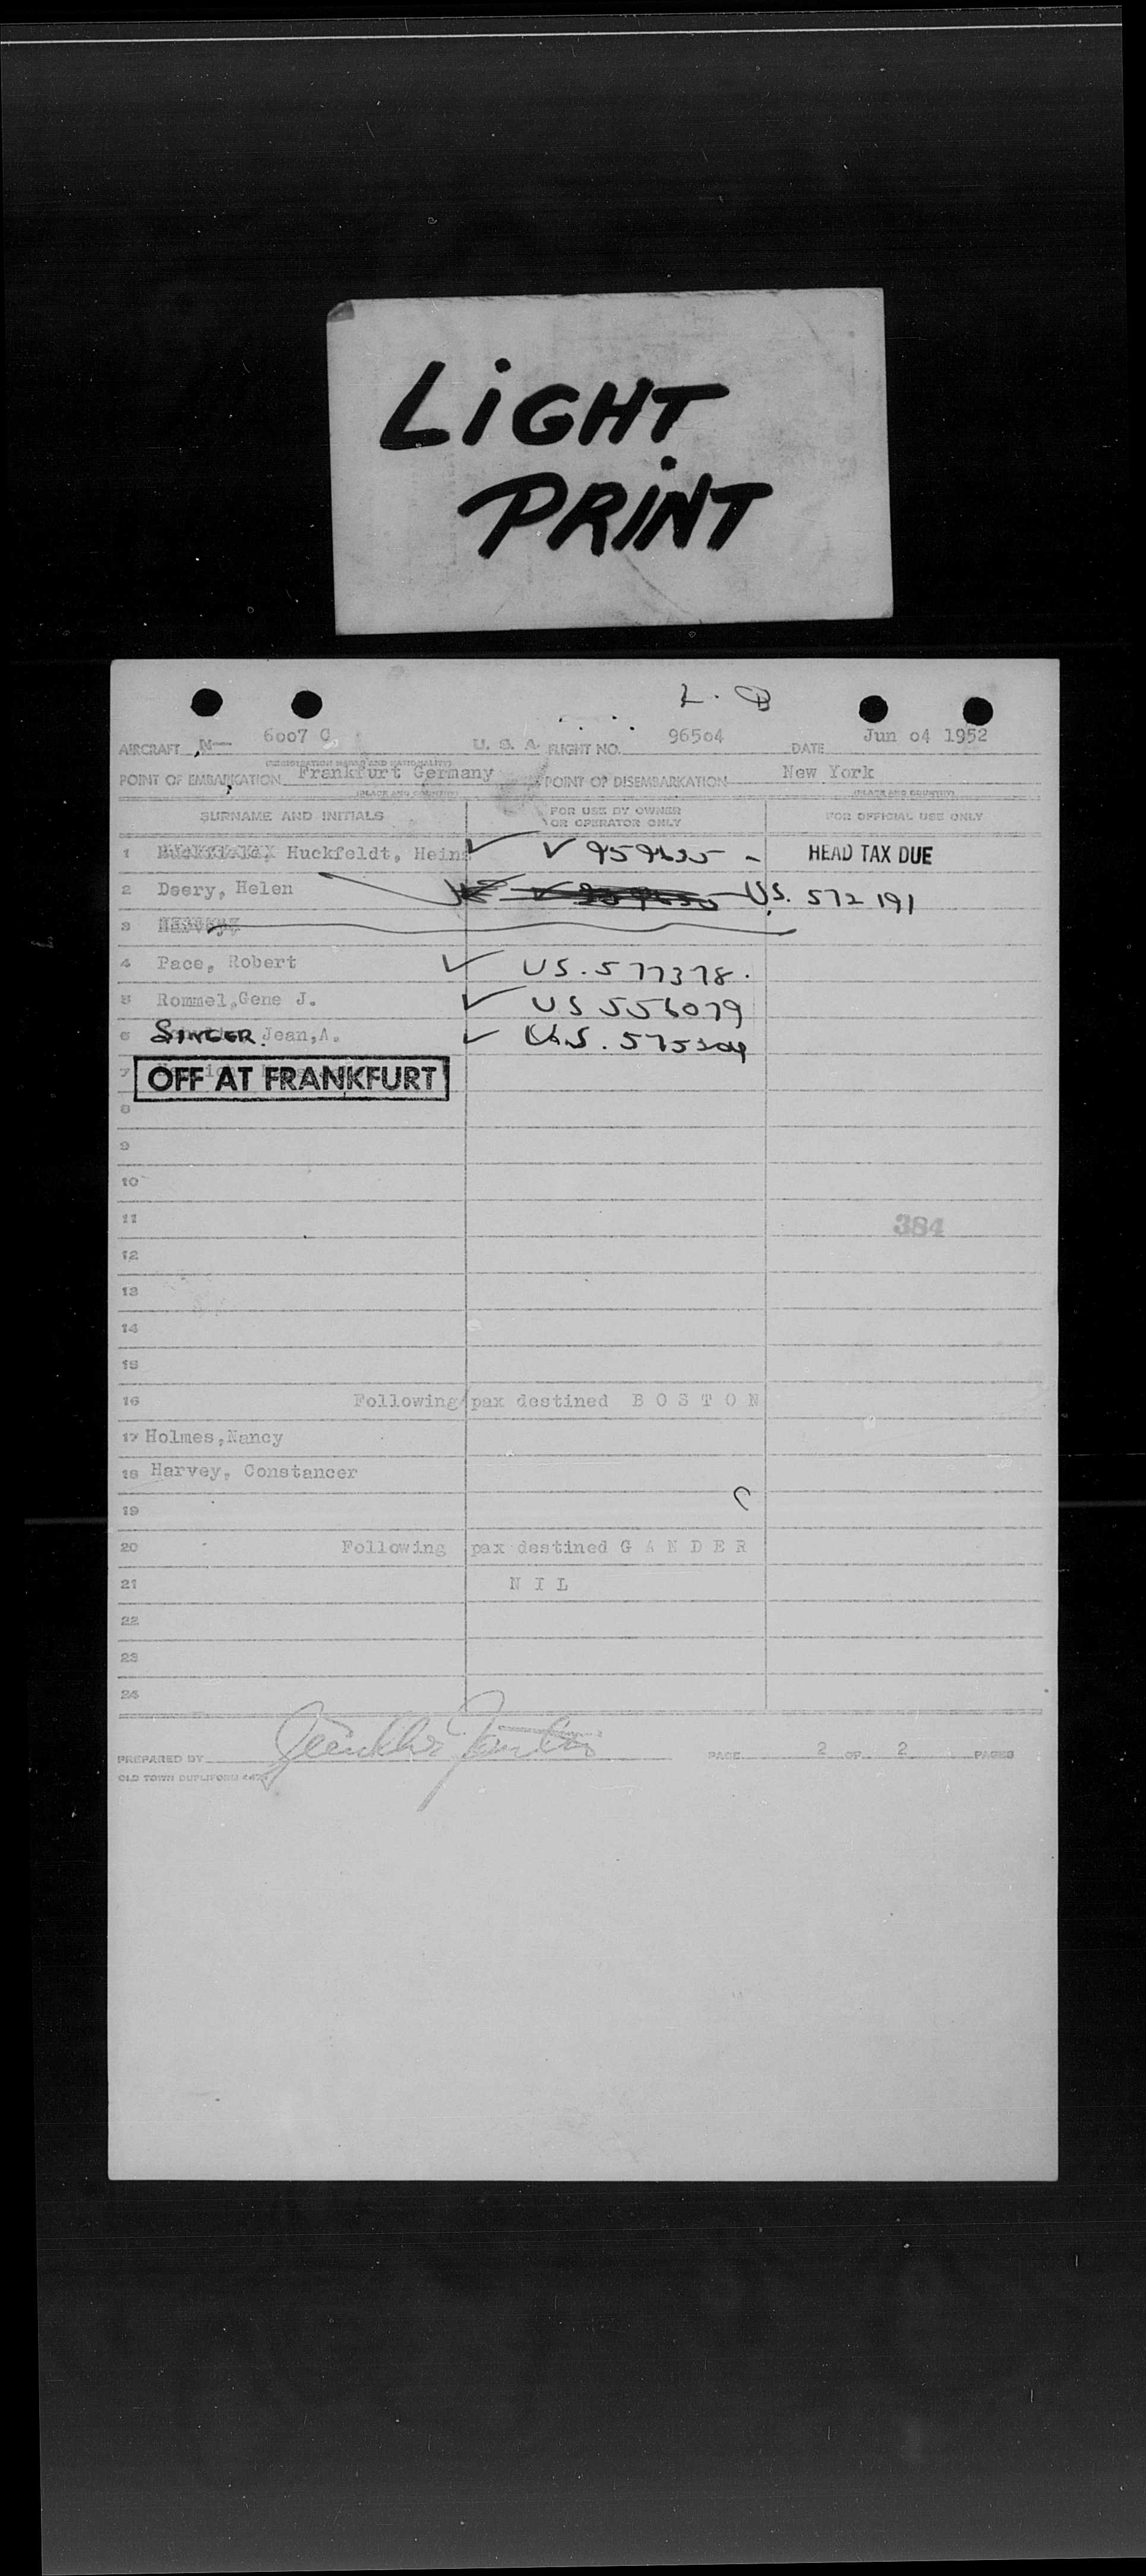 LiGHT
PRiNT
AIRCRAFT N- 6007 C U. S. A. FLIGHT NO. 96504 DATE Jun 04 1952
(REGISTRATION MARKS AND NATIONALITY)
POINT OF EMBARKATION Frankfurt Germany POINT OF DISEMBARKATION New York
(PLACE AND COUNTRY) (PLACE AND COUNTRY)
SURNAME AND INITIALS FOR USE BY OWNER OR OPERATOR ONLY FOR OFFICIAL USE ONLY
1 Huckfeldt, Hein ✓ ✓ HEAD TAX DUE
2 Deery, Helen US. 572 191
3
4 Pace, Robert ✓ US. 577378.
5 Rommel,Gene J. ✓ US 556079
6 SINGER. Jean,A. ✓ U.S.
7 OFF AT FRANKFURT
8
9
10
11 384
12
13
14
15
16 Following pax destined B O S T O N
17 Holmes,Nancy
18 Harvey, Constancer
19
20 Following pax destined G A N D E R
21 N I L
22
23
24
PREPARED BY PAGE 2 OF 2 PAGES
OLD TOWN DUPLIFORM